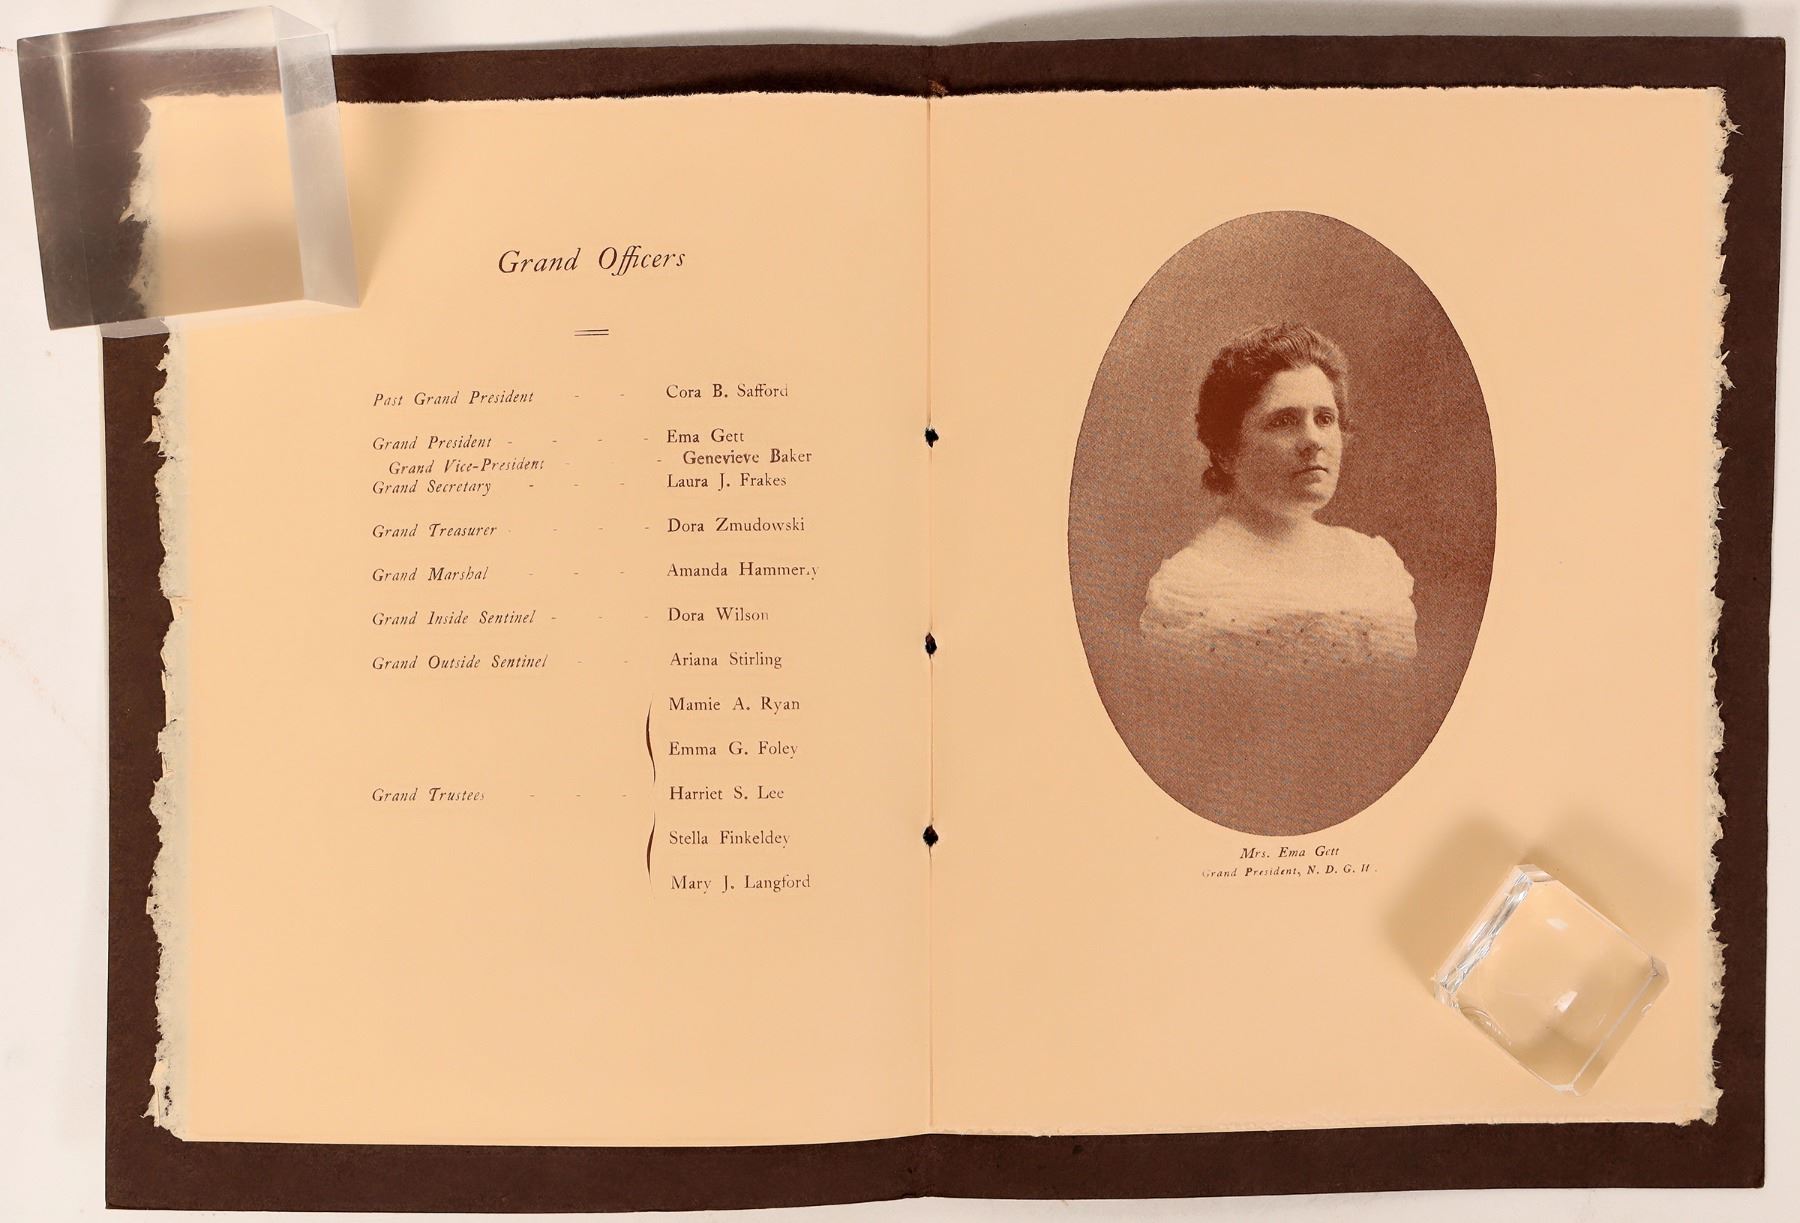 Grand Officers
Past Grand President - - Cora B. Safford
Grand President - - - - Ema Gett
Grand Vice-President - - - Genevieve Baker
Grand Secretary - - - Laura J. Frakes
Grand Treasurer - - - - Dora Zmudowski
Grand Marshal - - - Amanda
Grand Inside Sentinel - - - Dora Wilson
Grand Outside Sentinel - - Ariana Stirling
Mamie A. Ryan
Emma G. Foley
Grand Trustees - - - Harriet S. Lee
Stella Finkeldey
Mary J. Langford
Mrs. Ema Gett
Grand President, N. D. G.